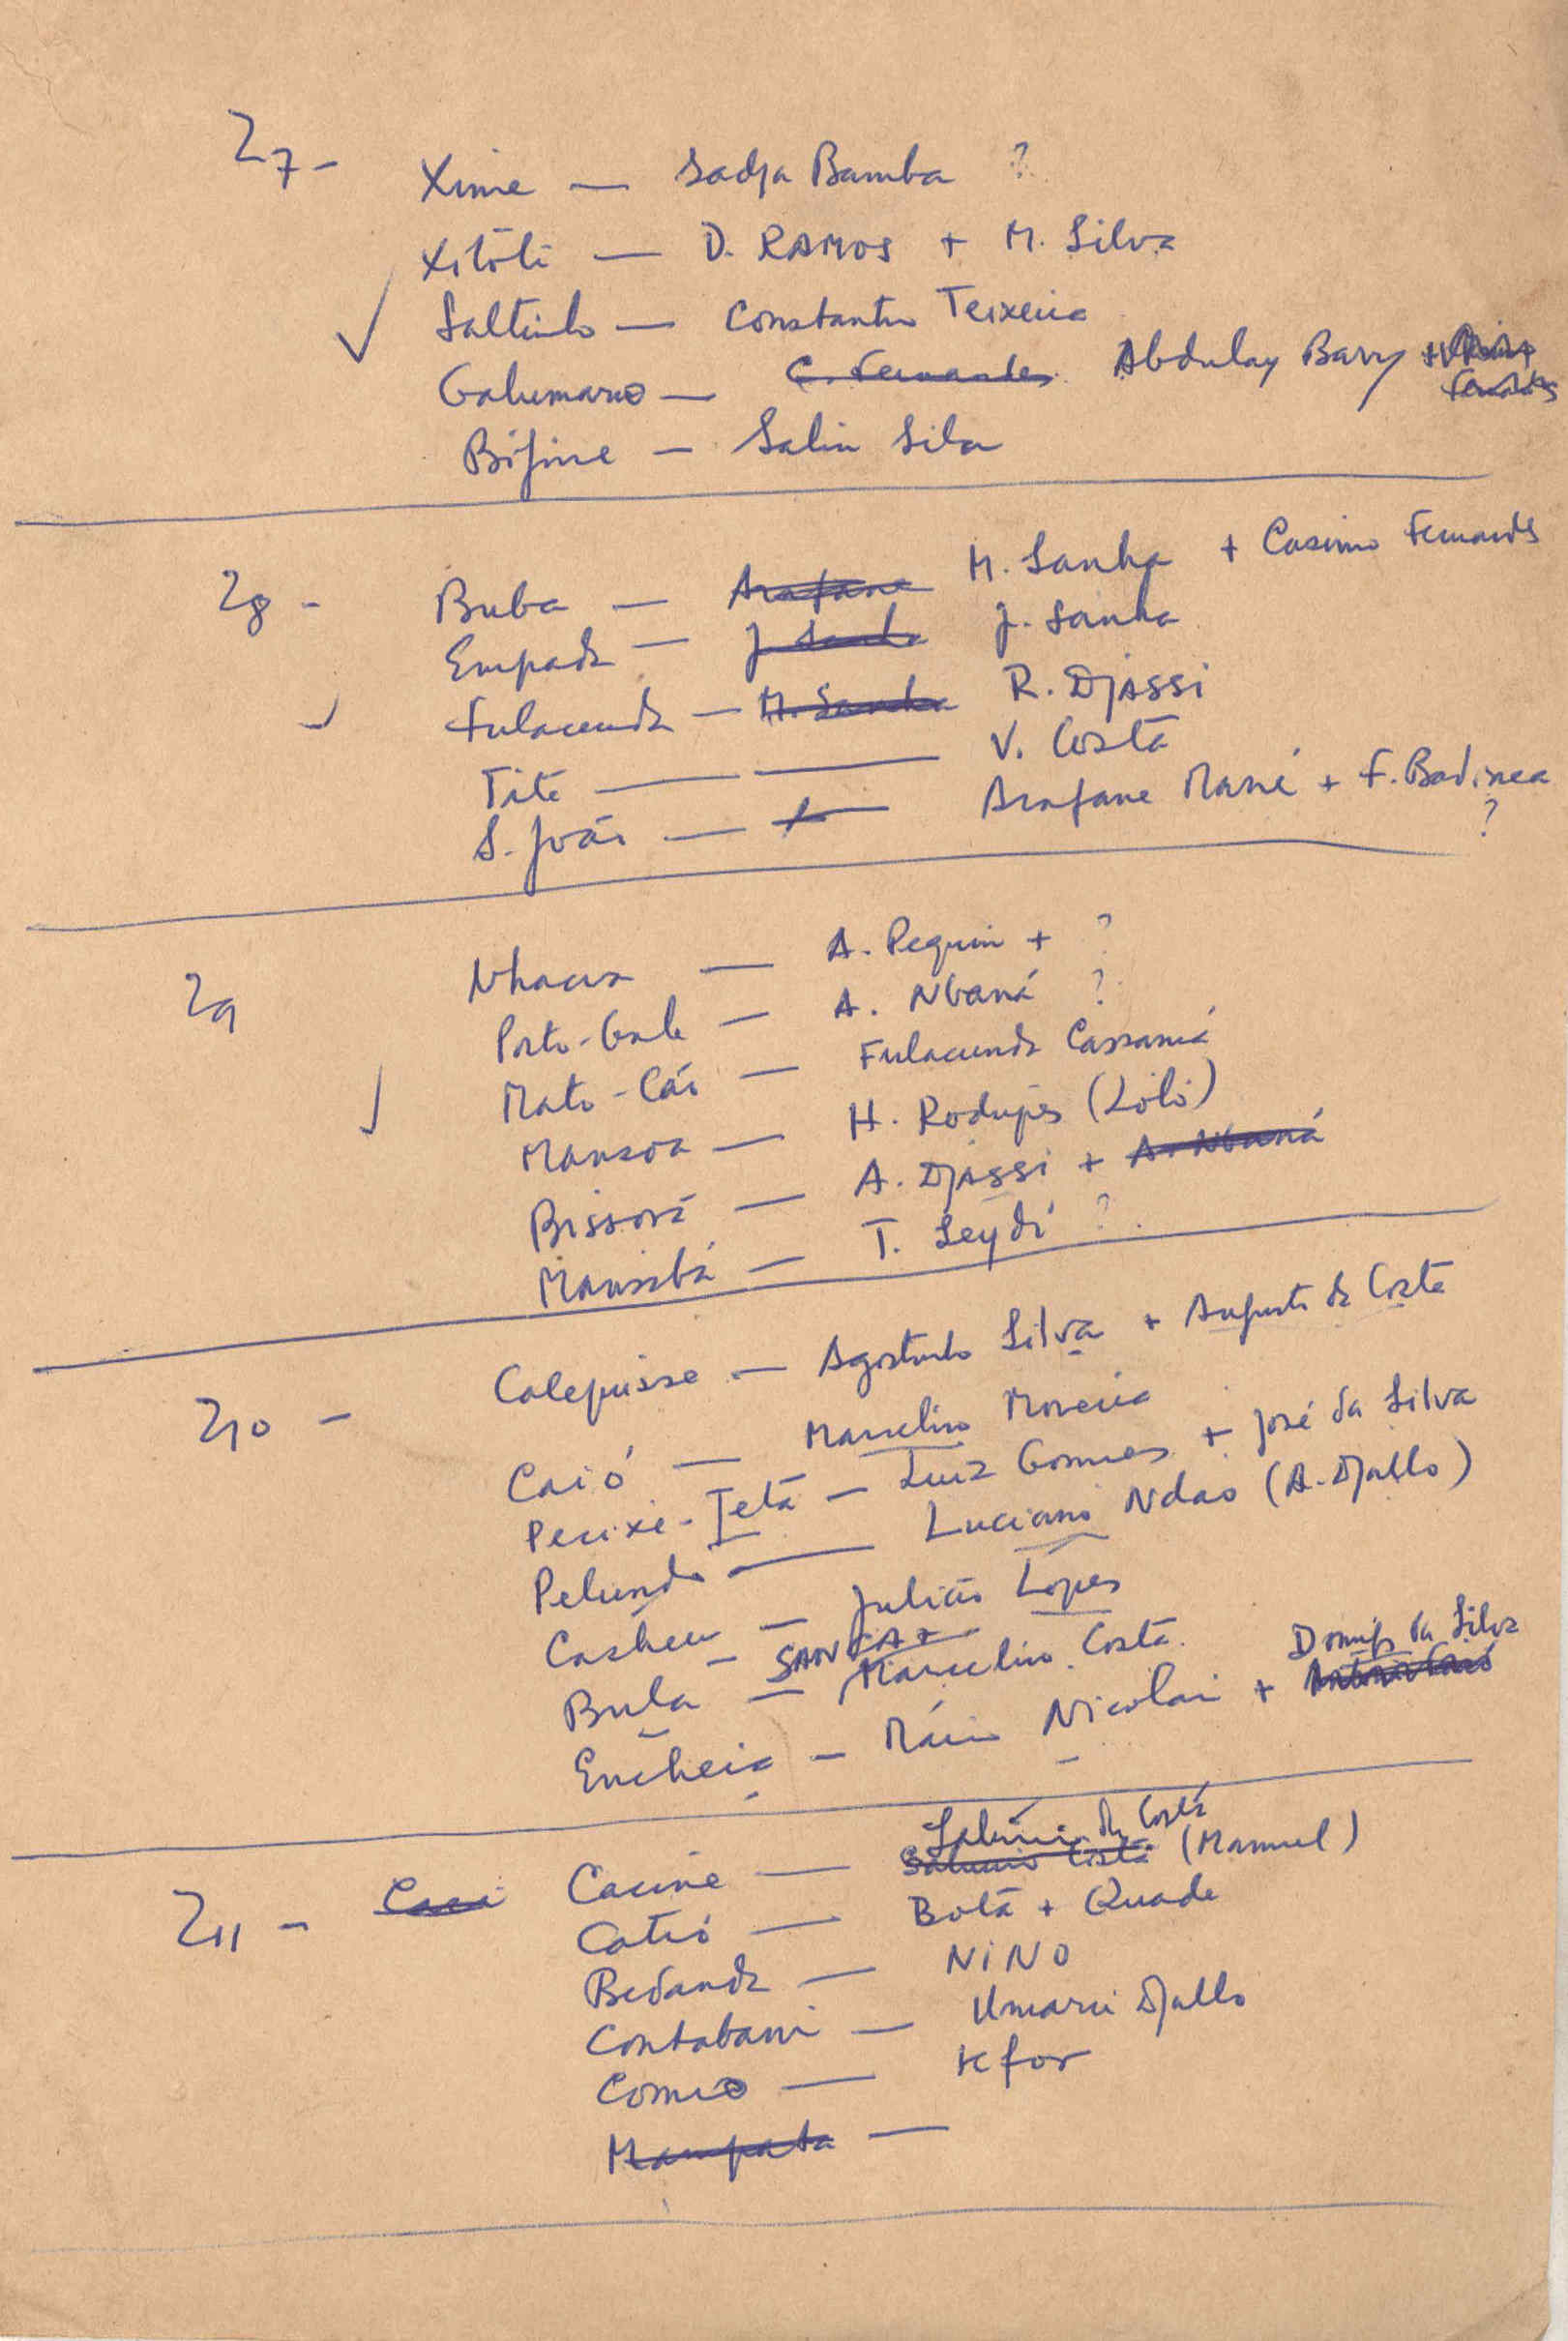 Z7 - Xime — Sadja Bamba ?
Xitóli — D. RAMOS + M. Silva
Saltinho — Constantino Teixeira
Galumaro — C. Fernandes Abdulay Barry +
Bijine — Salin Sila
Z8 - Buba — Arafane M. Sanha + Casimo Fernands
Empada — J Sanha J. Sanha
Fulacunda — M. Sanha R. Djassi
Tite — — V. Costa
S. João — Arafane Mané + F. Badinca ?
Z9 Nhacra — A. Pequin + ?
Porto-Gole — A. Nbaná ?
Mato-Cão — Fulacunda Cassamá
Mansoa — H. Rodrigues (Lóló)
Bissorã — A. Djassi + A. Nbaná
Mansabá — T. Seydi ?
Z10 - Calequisse — Agostinho Silva + Augusto da Costa
Caió — Marcelino Moreira
Pecixe-Jetá — Luiz Gomes + José da Silva
Pelundo — Luciano Ndao (A. Djallo)
Cacheu — Julião Lopes
Bula — SANCA +
— Marcelino Costa
Domigs da Silva
Encheia — Mário Nicolau +
Sabino da Costa
Z11 - Caci Cacine — Sabino Costa (Manuel)
Catió — Botã + Quade
Bedanda — NiNO
Contabani — Umaru Djallo
Como — Kfor
Mampata —